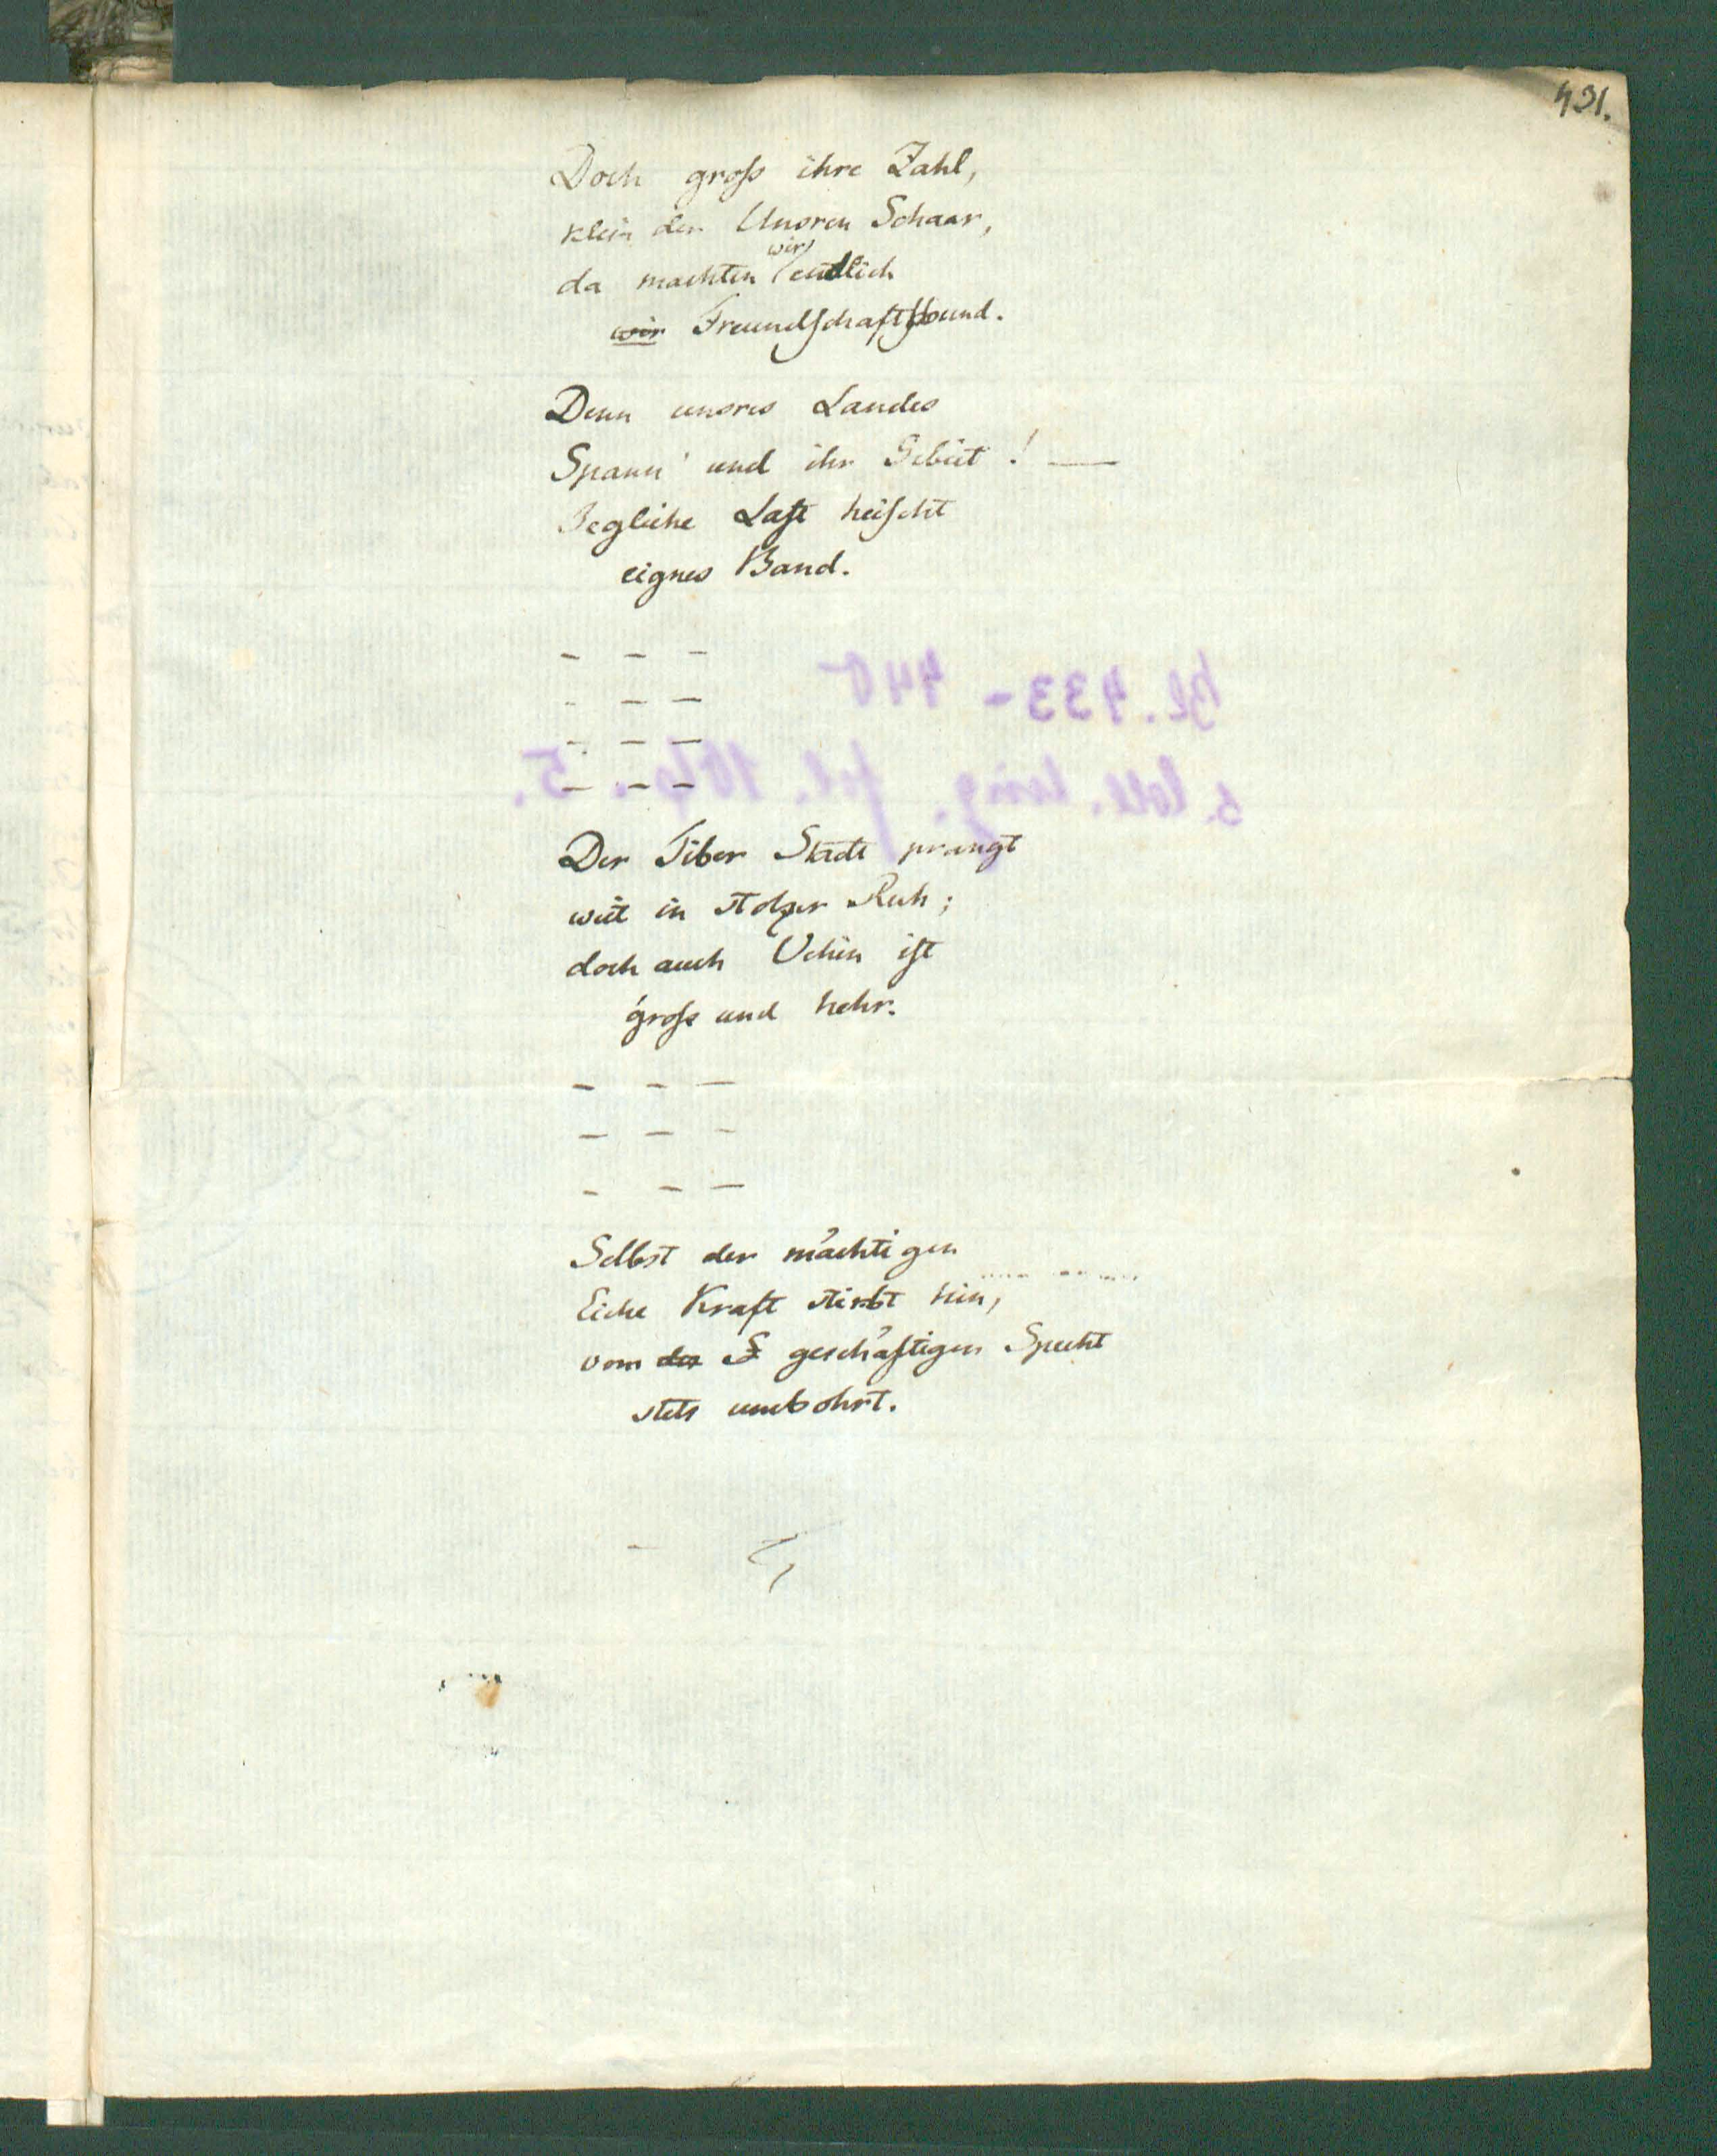 431.
Doch groſs ihre Zahl,
klein der Unsren Schaar,
da machten wir endlich
wir Freundſchaftsbund.
Denn unsres Landes
Spann' und ihr Gebiet! —
Jegliche Laſt heiſcht
eignes Band.
- - -
- - -
- - -
- - -
Der Tiber Stadt prangt
weit in stolzer Ruh;
doch auch Uchin iſt
groſs und hehr.
- - -
- - -
- - -
Selbst der mächtigen
Eiche Kraft stirbt hin,
vom der S geschäftigen Specht
stets umbohrt.
Bl. 433 - 440
s. Coll. ling. fol.